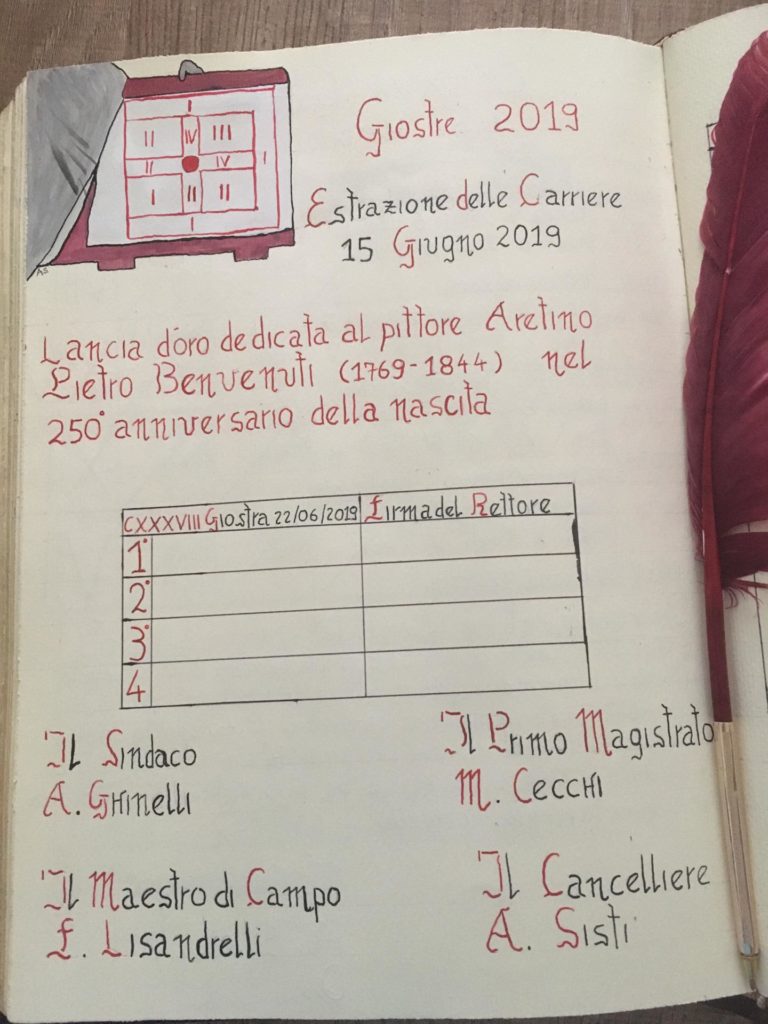 I
II IV III
II IV I
I II II
I
AS
Giostre 2019
Estrazione delle Carriere
15 Giugno 2019
Lancia d'oro dedicata al pittore Aretino
Pietro Benvenuti (1769-1844) nel
250° anniversario della nascita
CXXXVIII Giostra 22/06/2019 Firma del Rettore
1°
2°
3°
4
Il Sindaco
A. Ghinelli
Il Primo Magistrato
M. Cecchi
Il Maestro di Campo
F. Lisandrelli
Il Cancelliere
A. Sisti